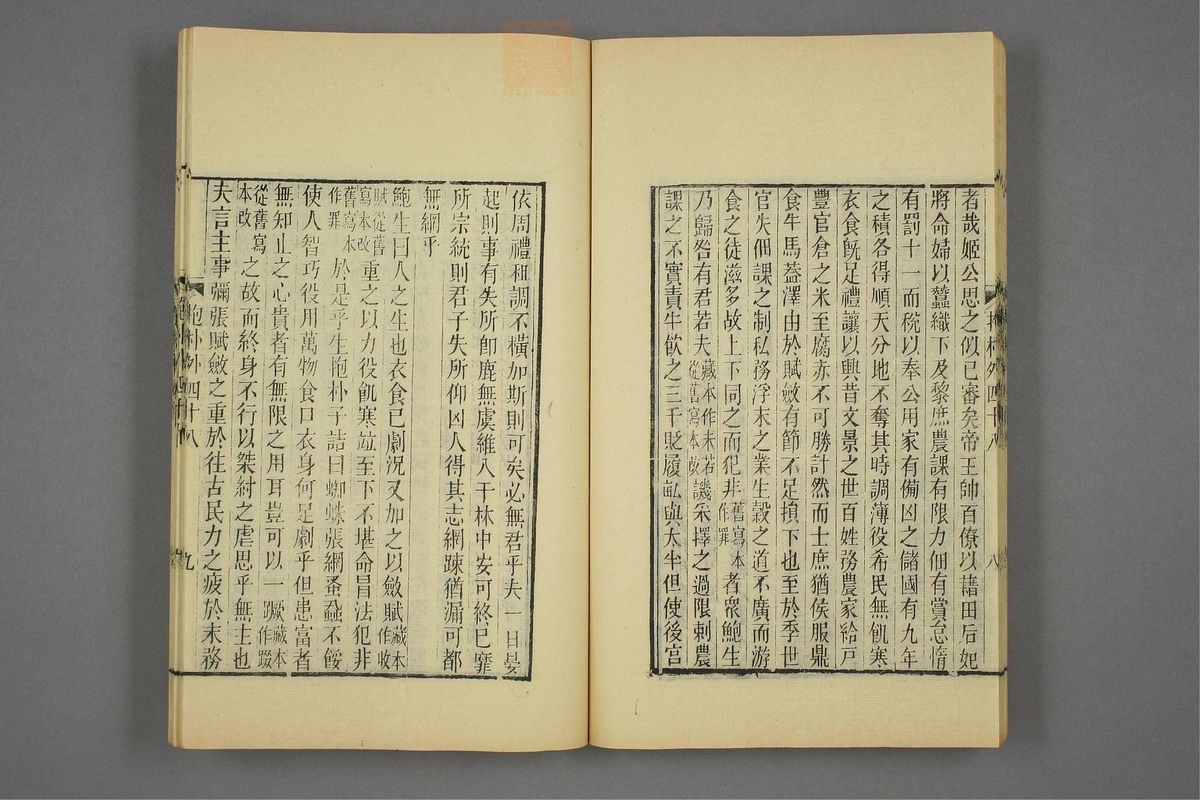 者哉姬公思之似已審矣帝王帥百僚以藉田后妃
將命婦以蠶織下及黎庶農課有限力佃有賞怠惰
有罰十一而稅以奉公用家有備凶之儲國有九年
之積各得順天分地不奪其時調薄役希民無飢寒
衣食旣足禮讓以興昔文景之世百姓務農家給戶
豐官倉之米至腐赤不可勝計然而士庶猶侯服鼎
食牛馬蓋澤由於賦斂有節不足損下也至於季世
官失佃課之制私務浮末之業生穀之道不廣而游
食之徒滋多故上下同之而犯非舊寫本作罪者衆鮑生
乃歸咎有君若夫藏本作末若從舊寫本改譏采擇之過限刺農
課之不實責牛飮之三千貶履畝與太半但使後宮
抱朴外四十八
八
依周禮租調不橫加斯則可矣必無君乎夫一日晏
起則事有失所卽鹿無虞維入于林中安可終已靡
所宗統則君子失所仰凶人得其志網疎猶漏可都
無網乎
鮑生曰人之生也衣食已劇況又加之以斂賦藏本作收
賦從舊寫本改重之以力役飢寒竝至下不堪命冒法犯非
舊寫本作罪於是乎生抱朴子詰曰蜘蛛張網蚤蝨不餒
使人智巧役用萬物食口衣身何足劇乎但患富者
無知止之心貴者有無限之用耳豈可以一蹶藏本作蹳
從舊寫本改之故而終身不行以桀紂之虐思乎無主也
夫言主事彌張賦斂之重於往古民力之疲於末務
抱朴外四十八
九